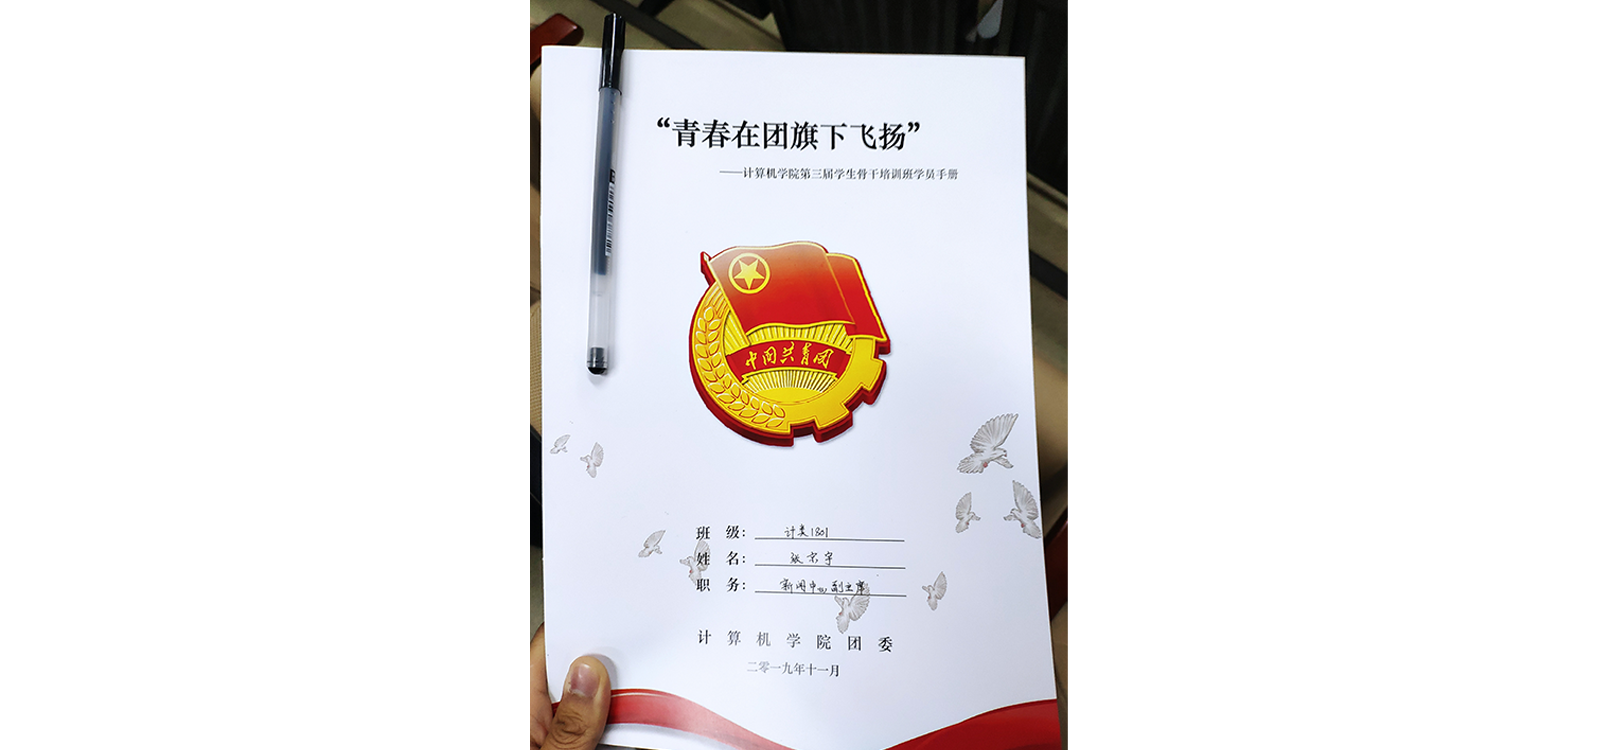 “青春在团旗下飞扬”
——计算机学院第三届学生骨干培训班学员手册
中国共青团
班 级： 计类1801
姓 名： 张宗宇
职 务： 新闻中心副主席
计 算 机 学 院 团 委
二零一九年十一月